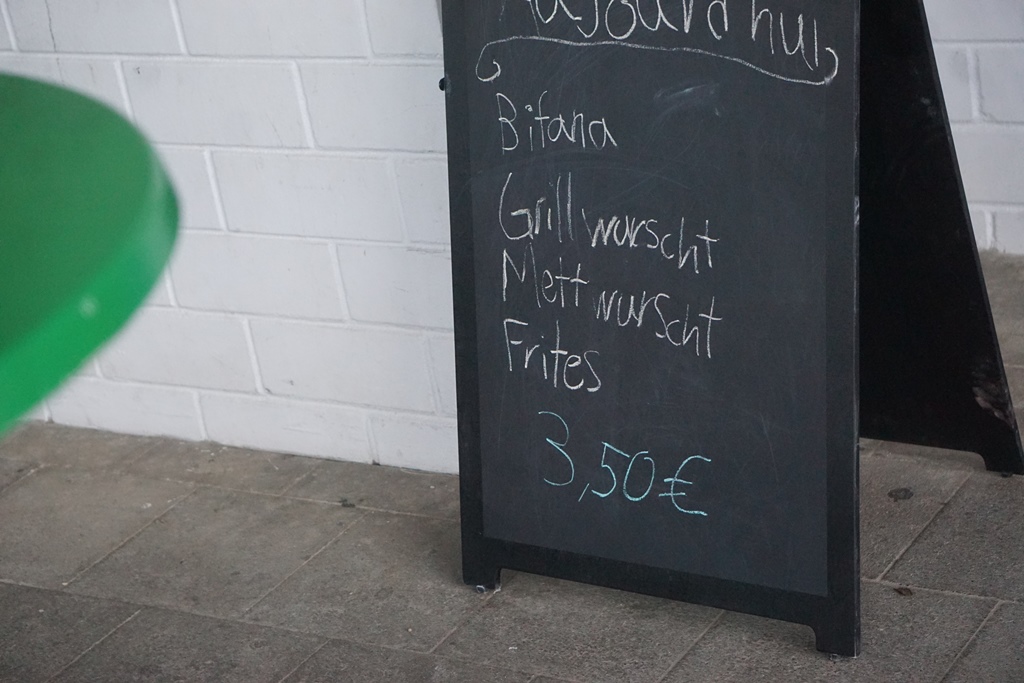 Aujourd'hui
Bifana
Grillwurscht
Mettwurscht
Frites
3,50€